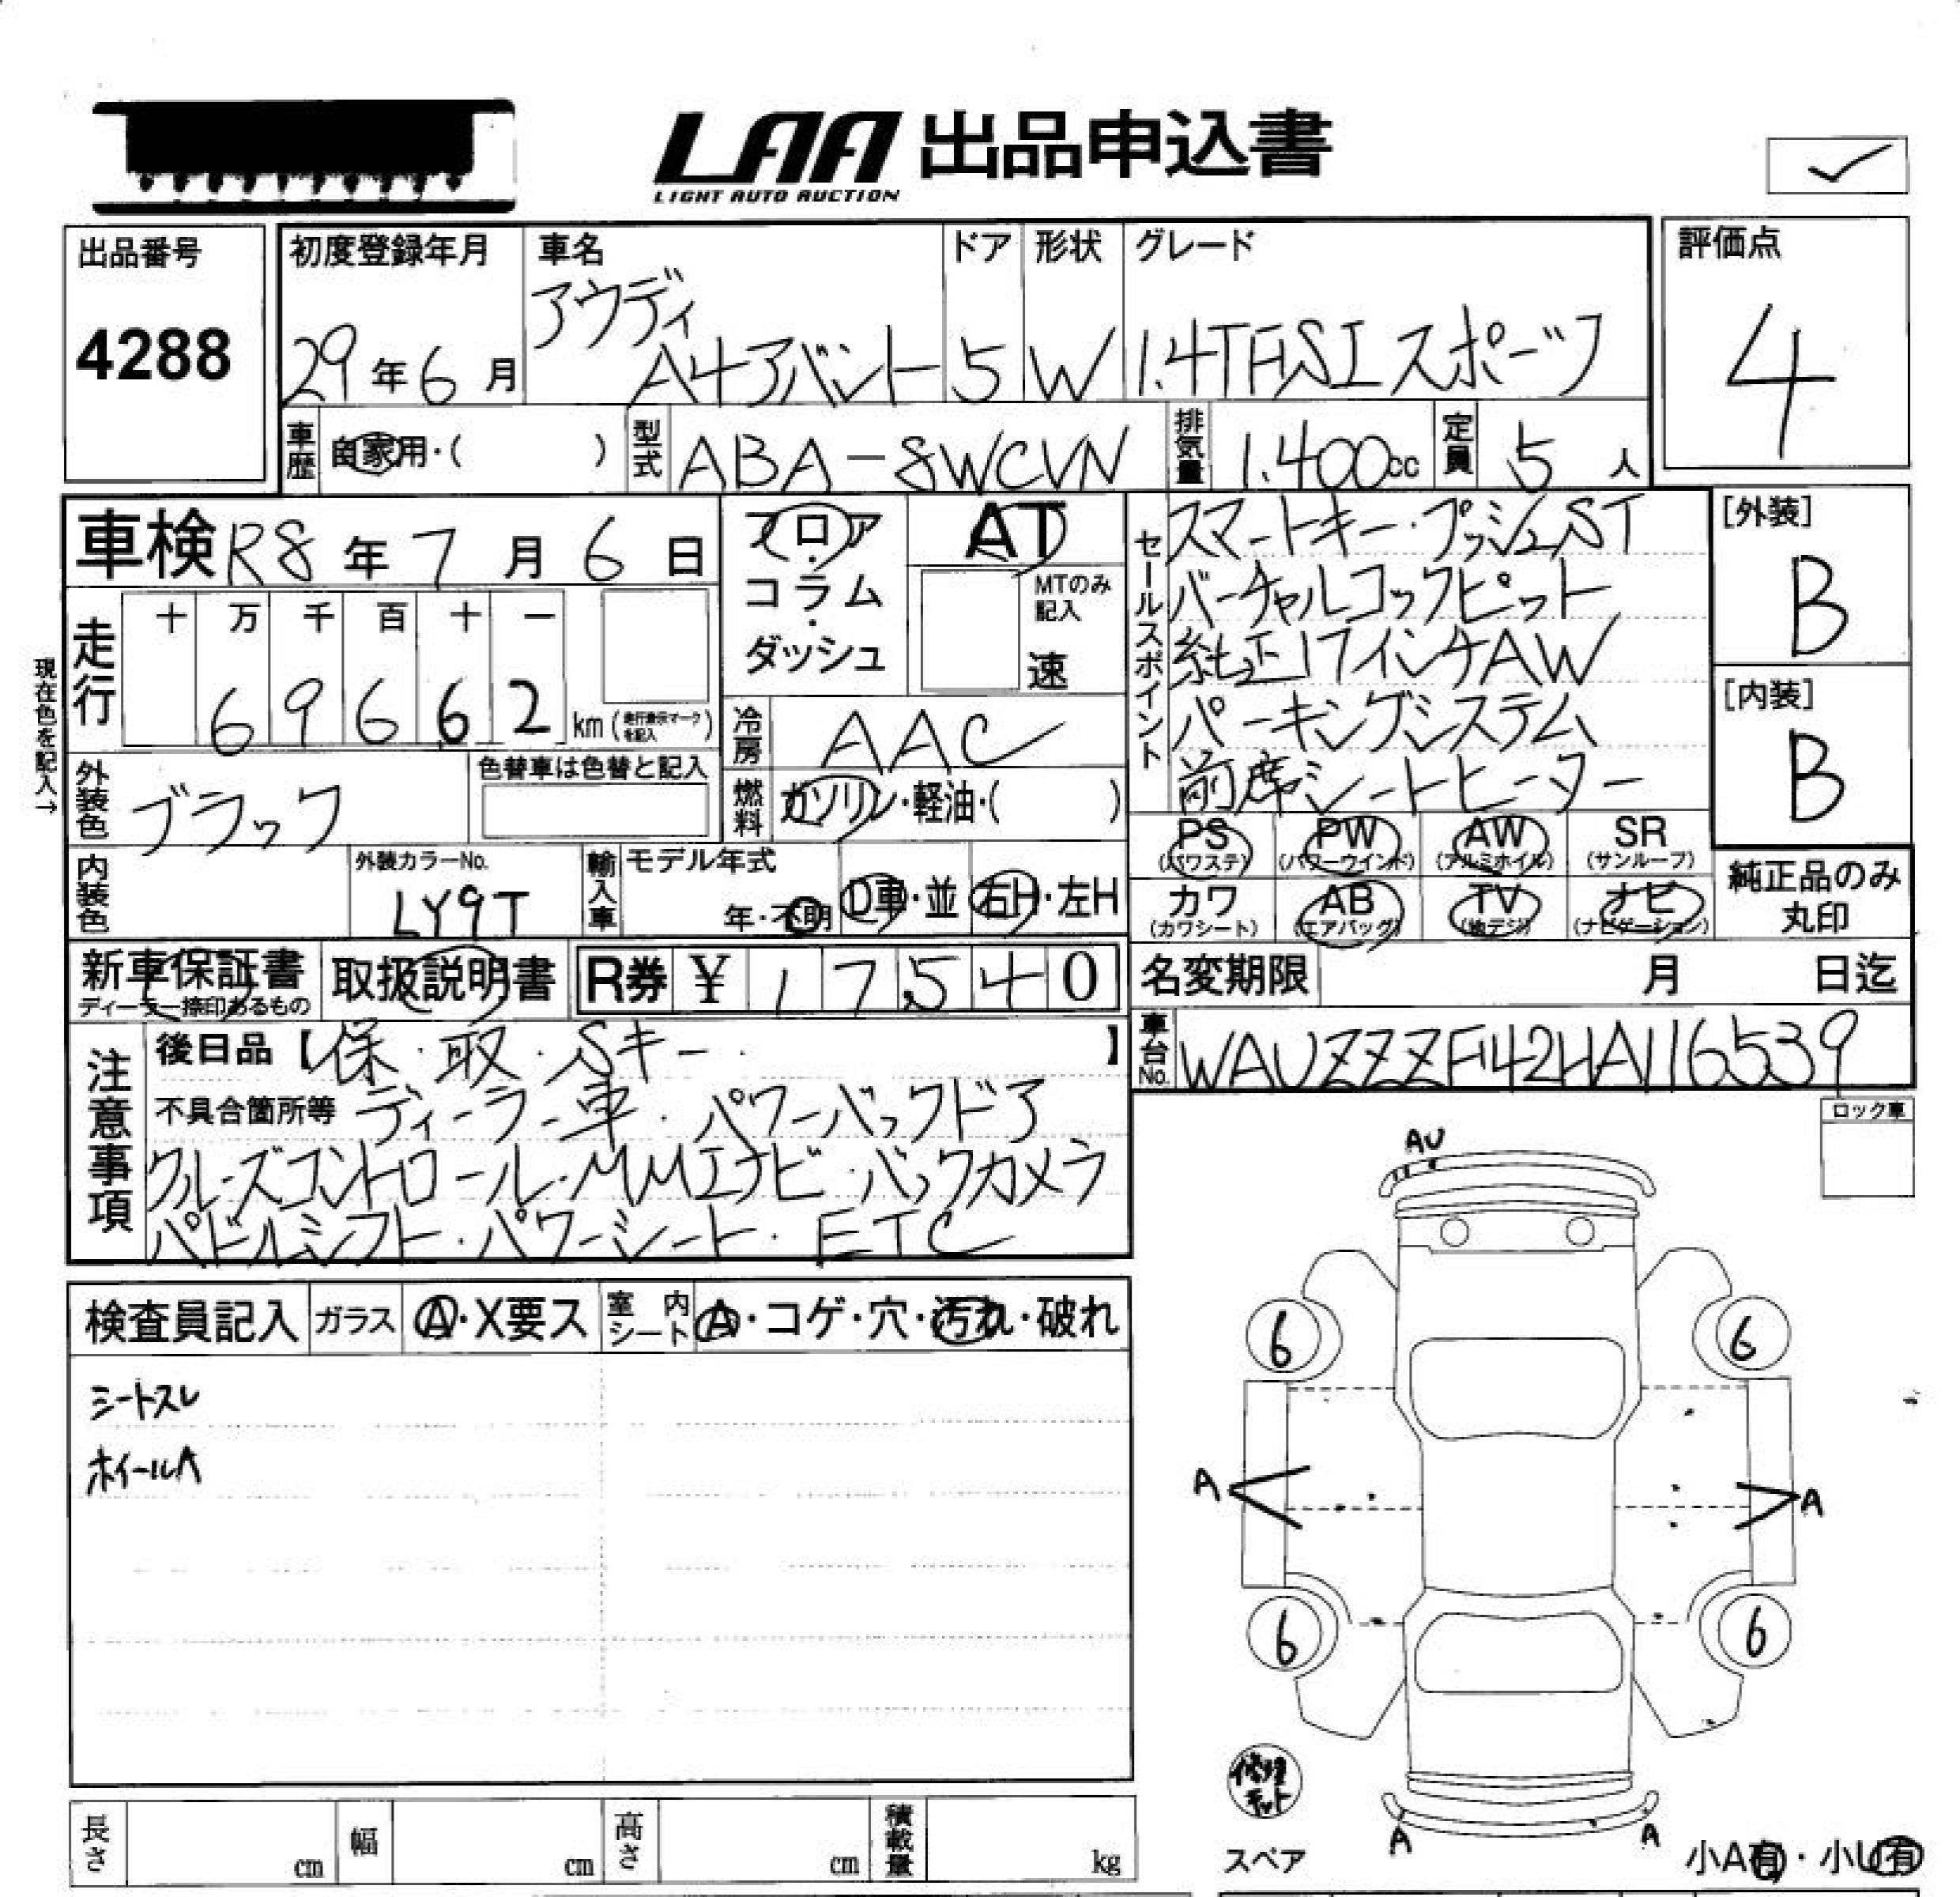 LAA 出品申込書
LIGHT AUTO AUCTION
✓
出品番号
4288
初度登録年月
29年6月
車名
アウディ
A4アバント
ドア
5
形状
W
グレード
1.4TFSIスポーツ
評価点
4
車歴
自家用・( )
型式
ABA-8WCVN
排気量
1.400cc
定員
5人
車検 R8年7月6日
フロア
・
コラム
・
ダッシュ
AT
MTのみ
記入
速
セールスポイント
スマートキー・プッシュST
バーチャルコックピット
純正17インチAW
パーキングシステム
前席シートヒーター
[外装]
B
[内装]
B
現在色を記入→
走行
十 万 千 百 十 一
6 9 6 6 2 km (走行表示マークを記入)
冷房
AAC
外装色
ブラック
色替車は色替と記入
燃料
ガソリン・軽油・( )
PS
(パワステ)
PW
(パワーウインド)
AW
(アルミホイル)
SR
(サンルーフ)
内装色
外装カラーNo.
LY9T
輸入車
モデル年式
年・不明
D車・並
右H・左H
カワ
(カワシート)
AB
(エアバッグ)
TV
(地デジ)
ナビ
(ナビゲーション)
純正品のみ
丸印
新車保証書
ディーラー捺印あるもの
取扱説明書
R券 ¥ 17,540
名変期限 月 日迄
車台No.
WAUZZZF42HA116539
注意事項
後日品【保・取・Sキー・ 】
不具合箇所等 ディーラー車・パワーバックドア
クルーズコントロール・MMIナビ・バックカメラ
パドルシフト・パワーシート・ETC
ロック車
AU
検査員記入
ガラス
A・X要ス
室内シート
A・コゲ・穴・汚れ・破れ
シートスレ
ホイールA
6
6
A
A
6
6
修理キット
スペア
A
A
小A有・小U有
長さ cm
幅 cm
高さ cm
積載量 kg